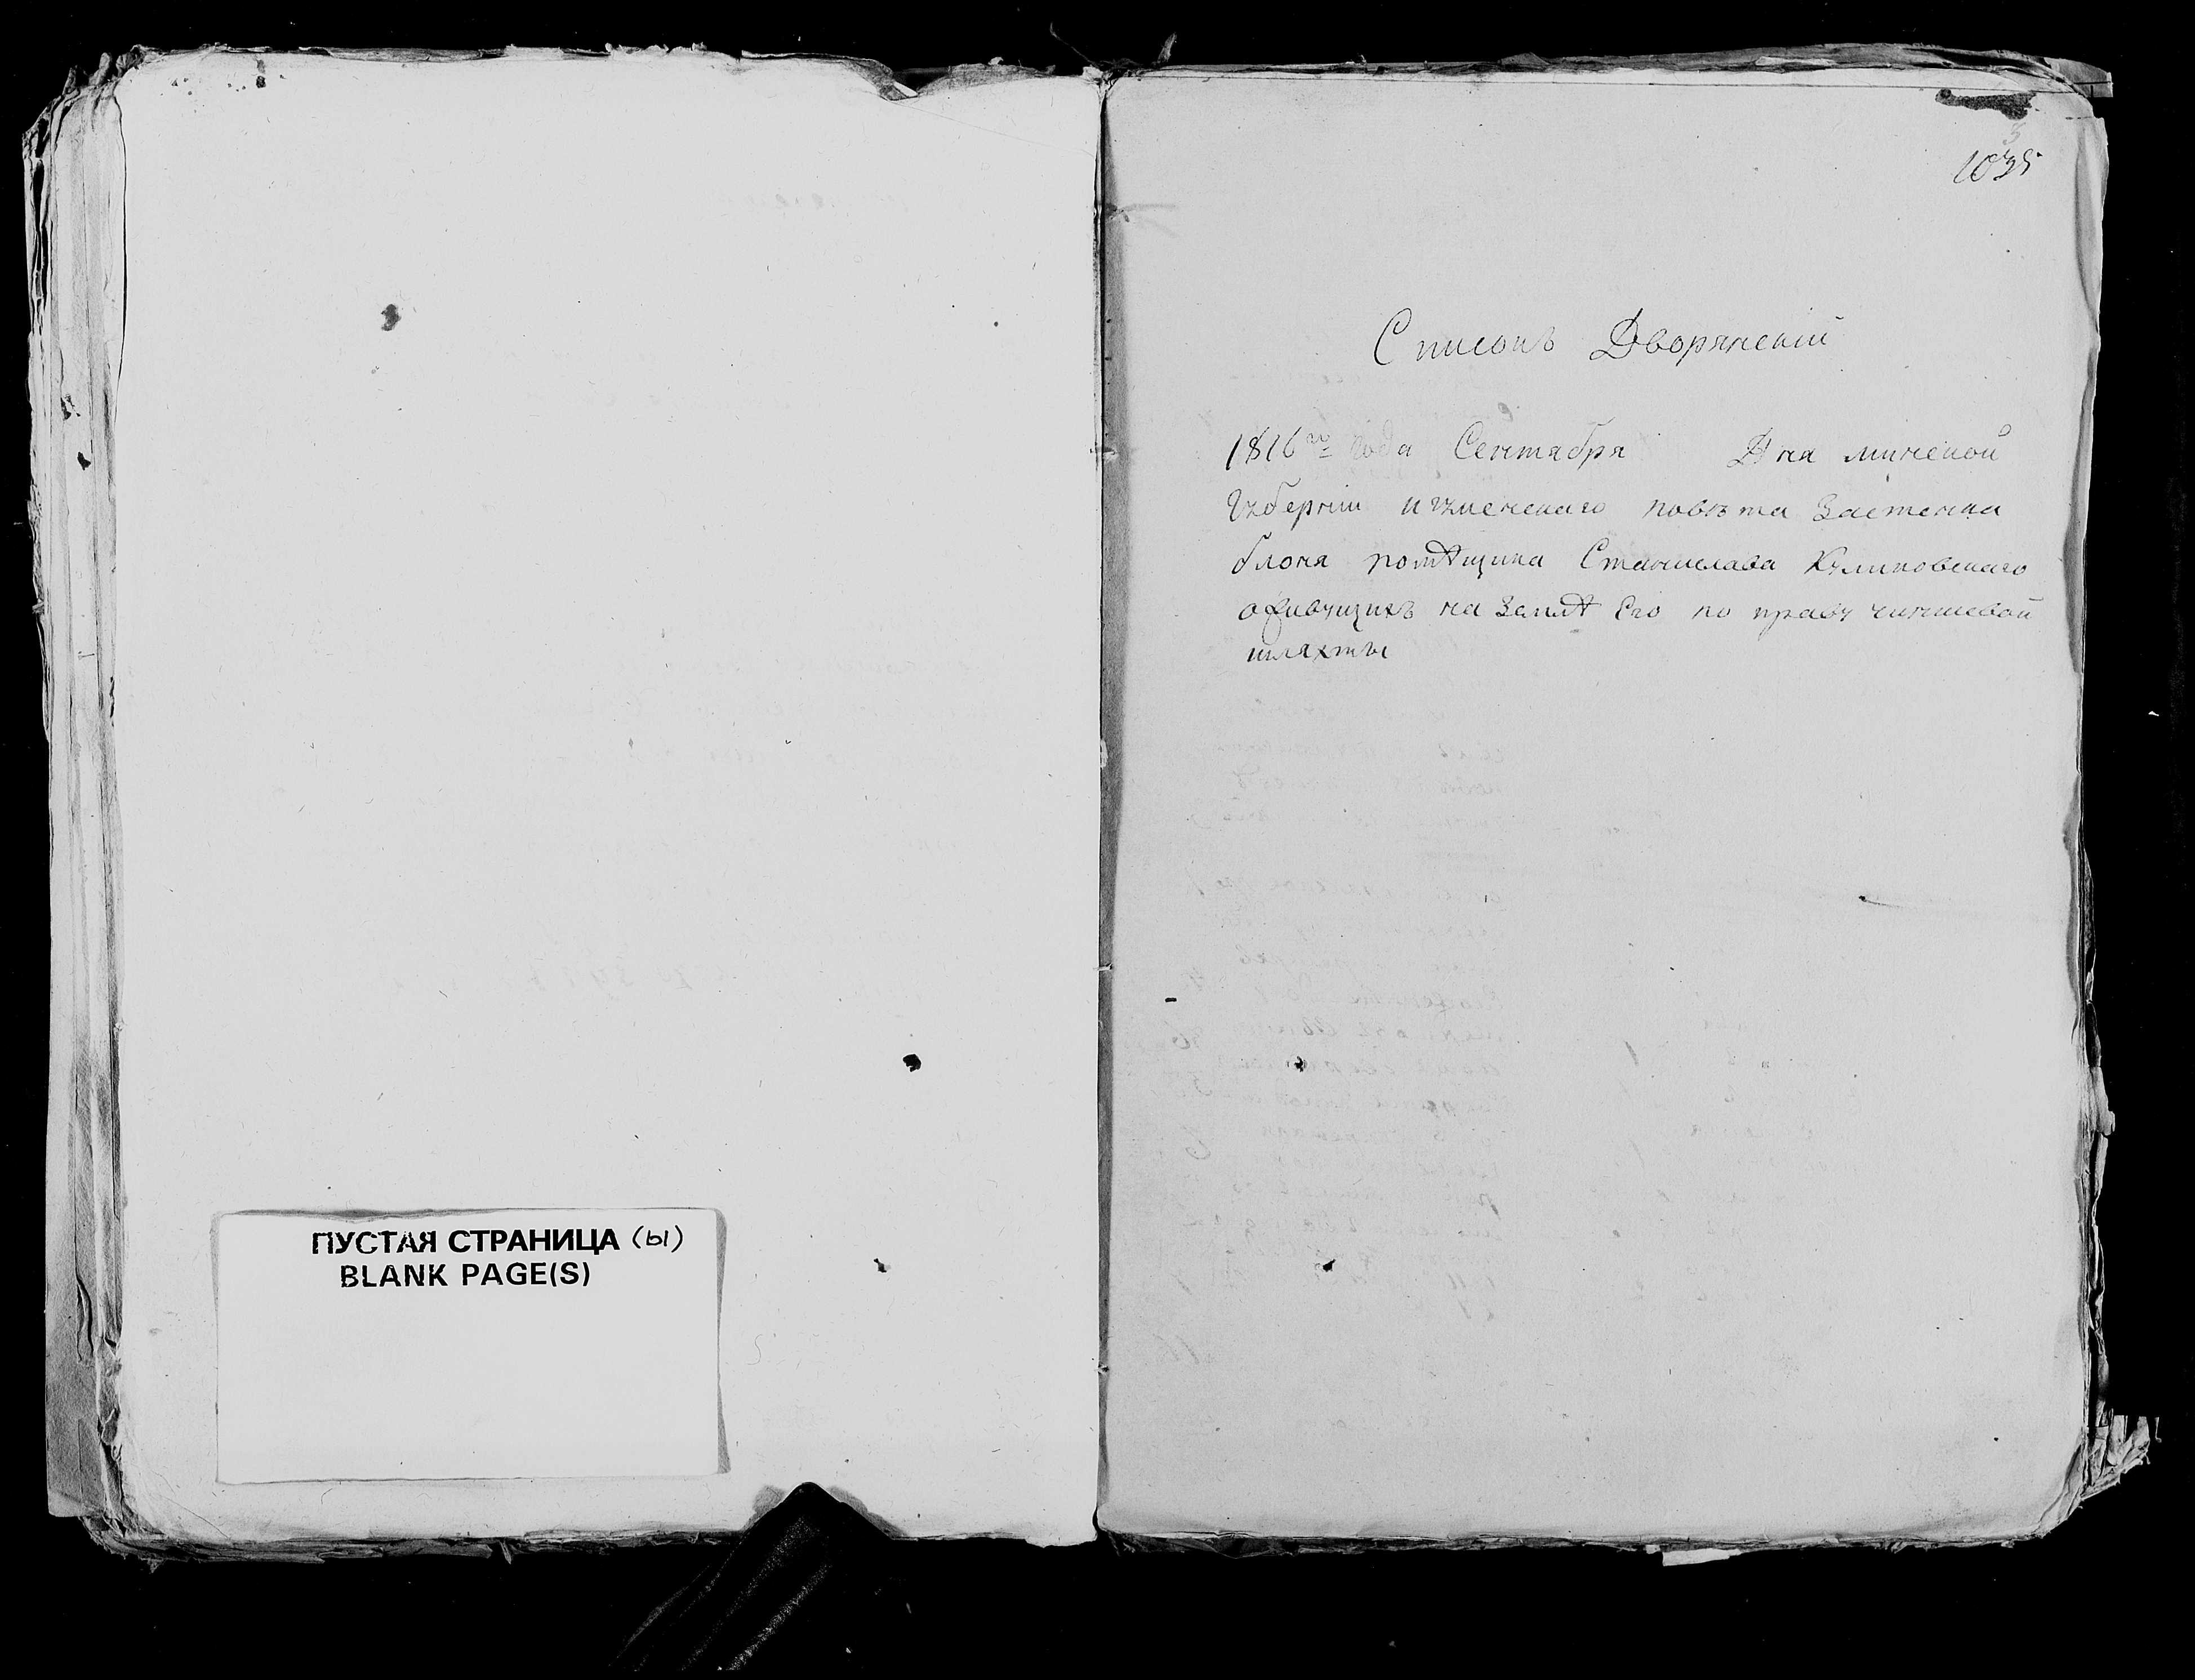 ПУСТАЯ СТРАНИЦА (ы)
BLANK PAGE(S)
1035
Списокъ Дворянскій
1816го года Сентября Дня минской
Губерніи игуменскаго повѣта Застенка
блоня помѣщика Станислава Куликовскаго
оживущихъ на Землѣ Его по праву чиншевой
шляхты